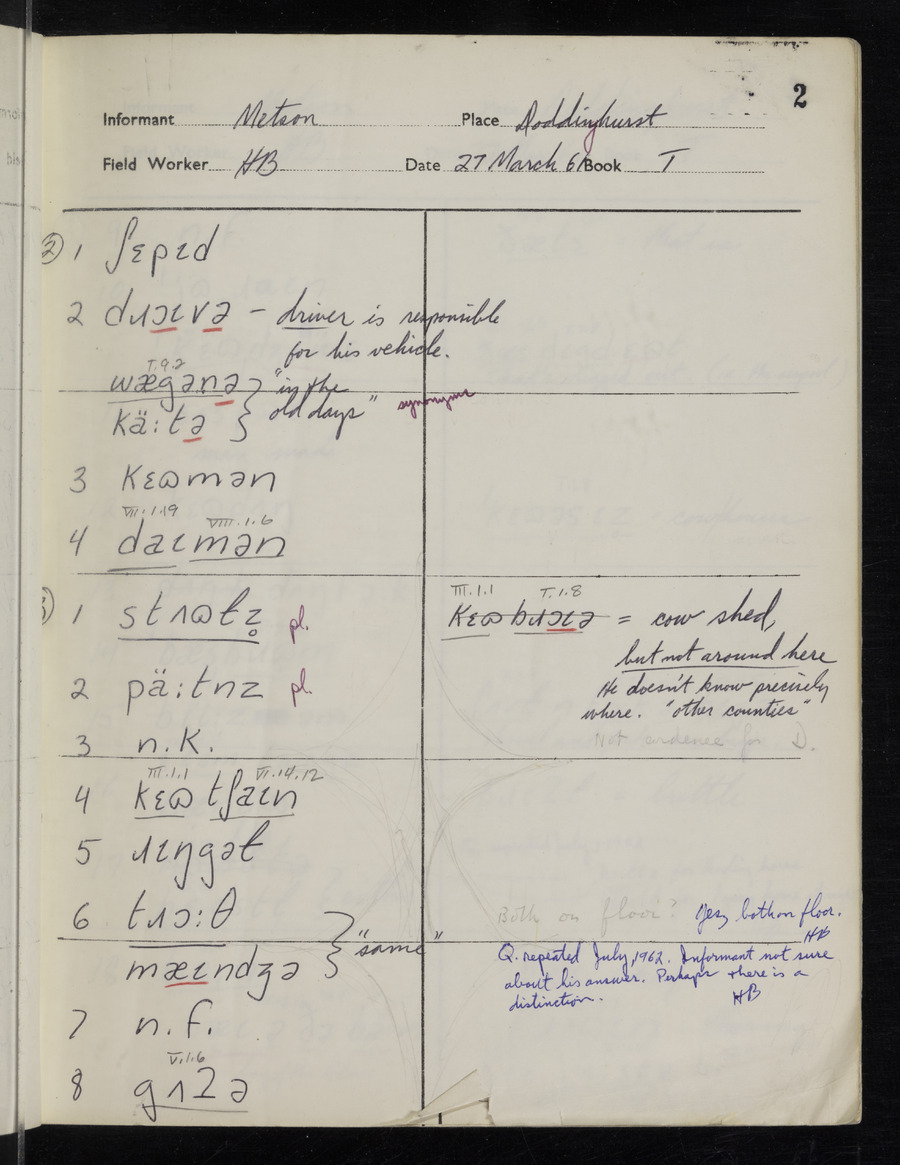 2
Informant Metson Place Doddinghurst
Field Worker HB Date 27 March 61 Book I
② 1 ʃɛpɪd
2 dɹɔɪvə – driver is responsible
for his vehicle.
I.9.2
wægənə } "in the
kä:tə } old days" synonyms
3 kɛɷmən
VII.1.19 VIII.1.6
4 daɪmən
③ 1 stʌɷtz̥ pl.
2 pä:tnz pl.
3 n.k.
III.1.1 VI.14.12
4 kɛɷ tʃaɪn
5 ɹɪŋgət
6 tɹɔ:θ } "same"
mæɪndʒə
7 n.f.
V.1.6
8 gʌʔə
III.1.1 I.1.8
kɛɷ bɹɔɪə = cow shed,
but not around here
He doesn't know precisely
where. "other counties"
Not evidence for D.
Both on floor? Yes, both on floor.
HB
Q. repeated July, 1962. Informant not sure
about his answer. Perhaps there is a
distinction. HB